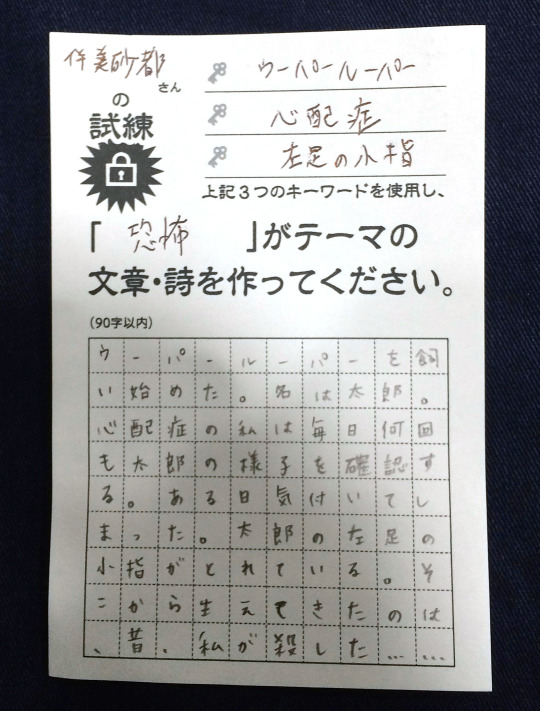 伴美砂都
さん
の
試練
ウーパールーパー
心配症
左足の小指
上記3つのキーワードを使用し、
「 恐怖 」がテーマの
文章・詩を作ってください。
(90字以内)
ウーパールーパーを飼
い始めた。名は太郎。
心配症の私は毎日何回
も太郎の様子を確認す
る。ある日気付いてし
まった。太郎の左足の
小指がとれている。そ
こから生えてきたのは
、昔、私が殺した……